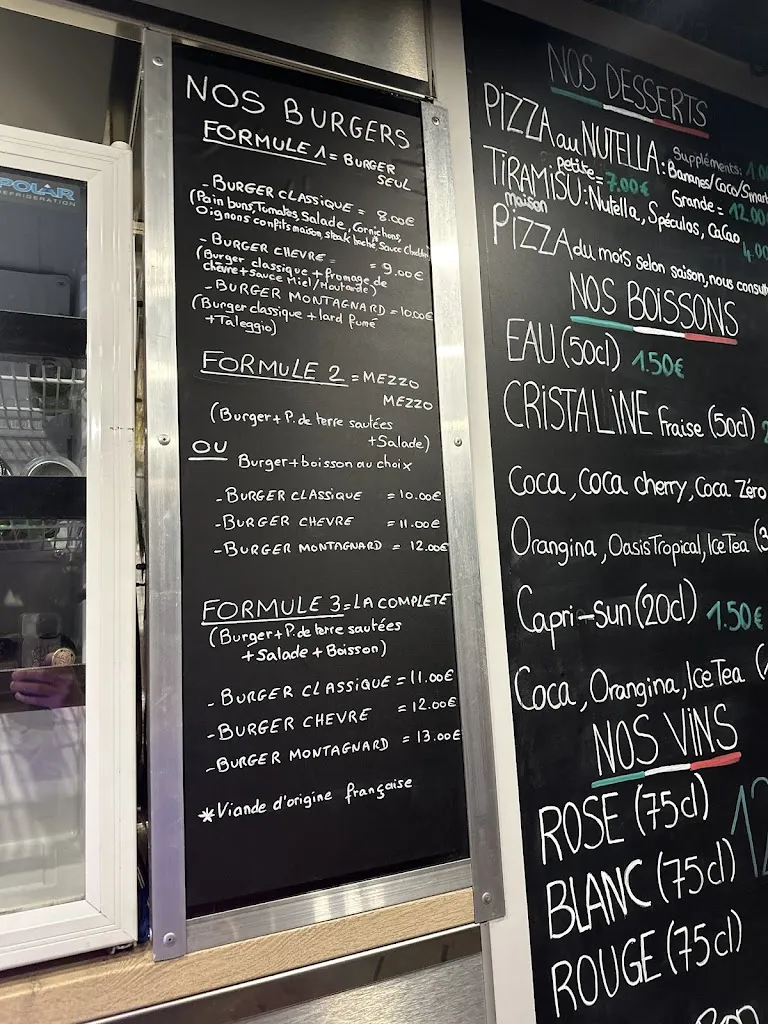 POLAR
REFRIGERATION
NOS BURGERS
FORMULE 1 = BURGER
SEUL
- BURGER CLASSIQUE = 8.00€
(Pain buns, Tomates, Salade, Cornichons,
Oignons confits maison, steak haché, Sauce Cheddar)
- BURGER CHEVRE = 9.00€
(Burger classique + fromage de
chèvre + sauce Miel/Moutarde)
- BURGER MONTAGNARD = 10.00€
(Burger classique + lard fumé
+ Taleggio)
FORMULE 2 = MEZZO
MEZZO
(Burger + P. de terre sautées
+ Salade)
OU
Burger + boisson au choix
- BURGER CLASSIQUE = 10.00€
- BURGER CHEVRE = 11.00€
- BURGER MONTAGNARD = 12.00€
FORMULE 3 = LA COMPLETE
(Burger + P. de terre sautées
+ Salade + Boisson)
- BURGER CLASSIQUE = 11.00€
- BURGER CHEVRE = 12.00€
- BURGER MONTAGNARD = 13.00€
* Viande d'origine française
NOS DESSERTS
PIZZA au NUTELLA: Suppléments:
Bananes/Coco/Smart
petite = 7.00€ Grande = 12.00
TIRAMISU: Nutella, Spéculos, Cacao
maison
PIZZA du mois selon saison, nous consult
NOS BOISSONS
EAU (50cl) 1.50€
CRISTALINE Fraise (50cl)
Coca, Coca cherry, Coca Zéro
Orangina, Oasis Tropical, Ice Tea (3
Capri-Sun (20cl) 1.50€
Coca, Orangina, Ice Tea (
NOS VINS
ROSE (75cl)
BLANC (75cl)
ROUGE (75cl)